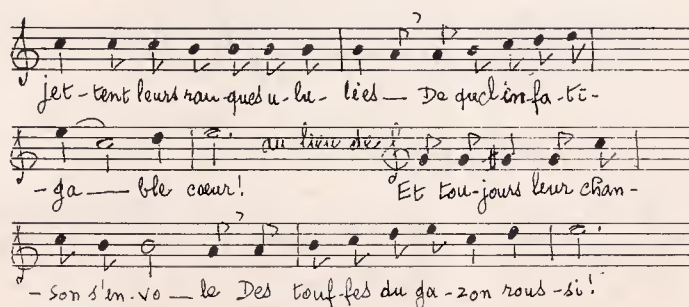 jet-tent leurs rau-ques u-lu-lies— De quel in-fa-ti-
au lieu de
-ga — ble cœur! Et tou-jours leur chan-
-son s'en-vo — le Des touf-fes du ga-zon rous-si!